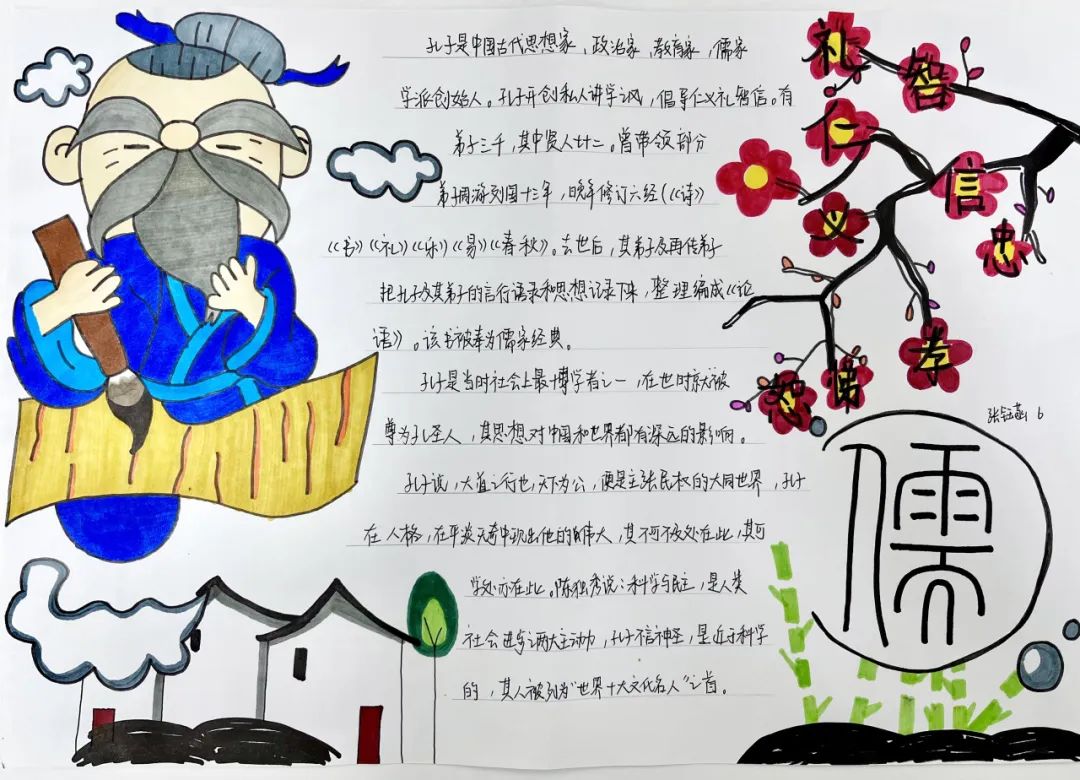 孔子是中国古代思想家、政治家、教育家,儒家
学派创始人。孔子开创私人讲学之风,倡导仁义礼智信。有
弟子三千,其中贤人七十二。曾带领部分
弟子周游列国十三年,晚年修订六经(《诗》
《书》《礼》《乐》《易》《春秋》。去世后,其弟子及再传弟子
把孔子及其弟子的言行语录和思想记录下来,整理编成《论
语》。该书被奉为儒家经典。
孔子是当时社会上最博学者之一,在世时就被
尊为孔圣人,其思想对中国和世界都有深远的影响。
孔子说,大道之行也,天下为公,便是主张民权的大同世界,孔子
在人格,在平淡无奇中现出他的伟大,其不可及处在此,其可
学处亦在此。陈独秀说:科学与民主,是人类
社会进步两大主动力,孔子信神圣,是近于科学
的,其人被列为“世界十大文化名人”之首。
礼
智
仁
信
义
忠
孝
悌
恕
张钰菡 6
儒